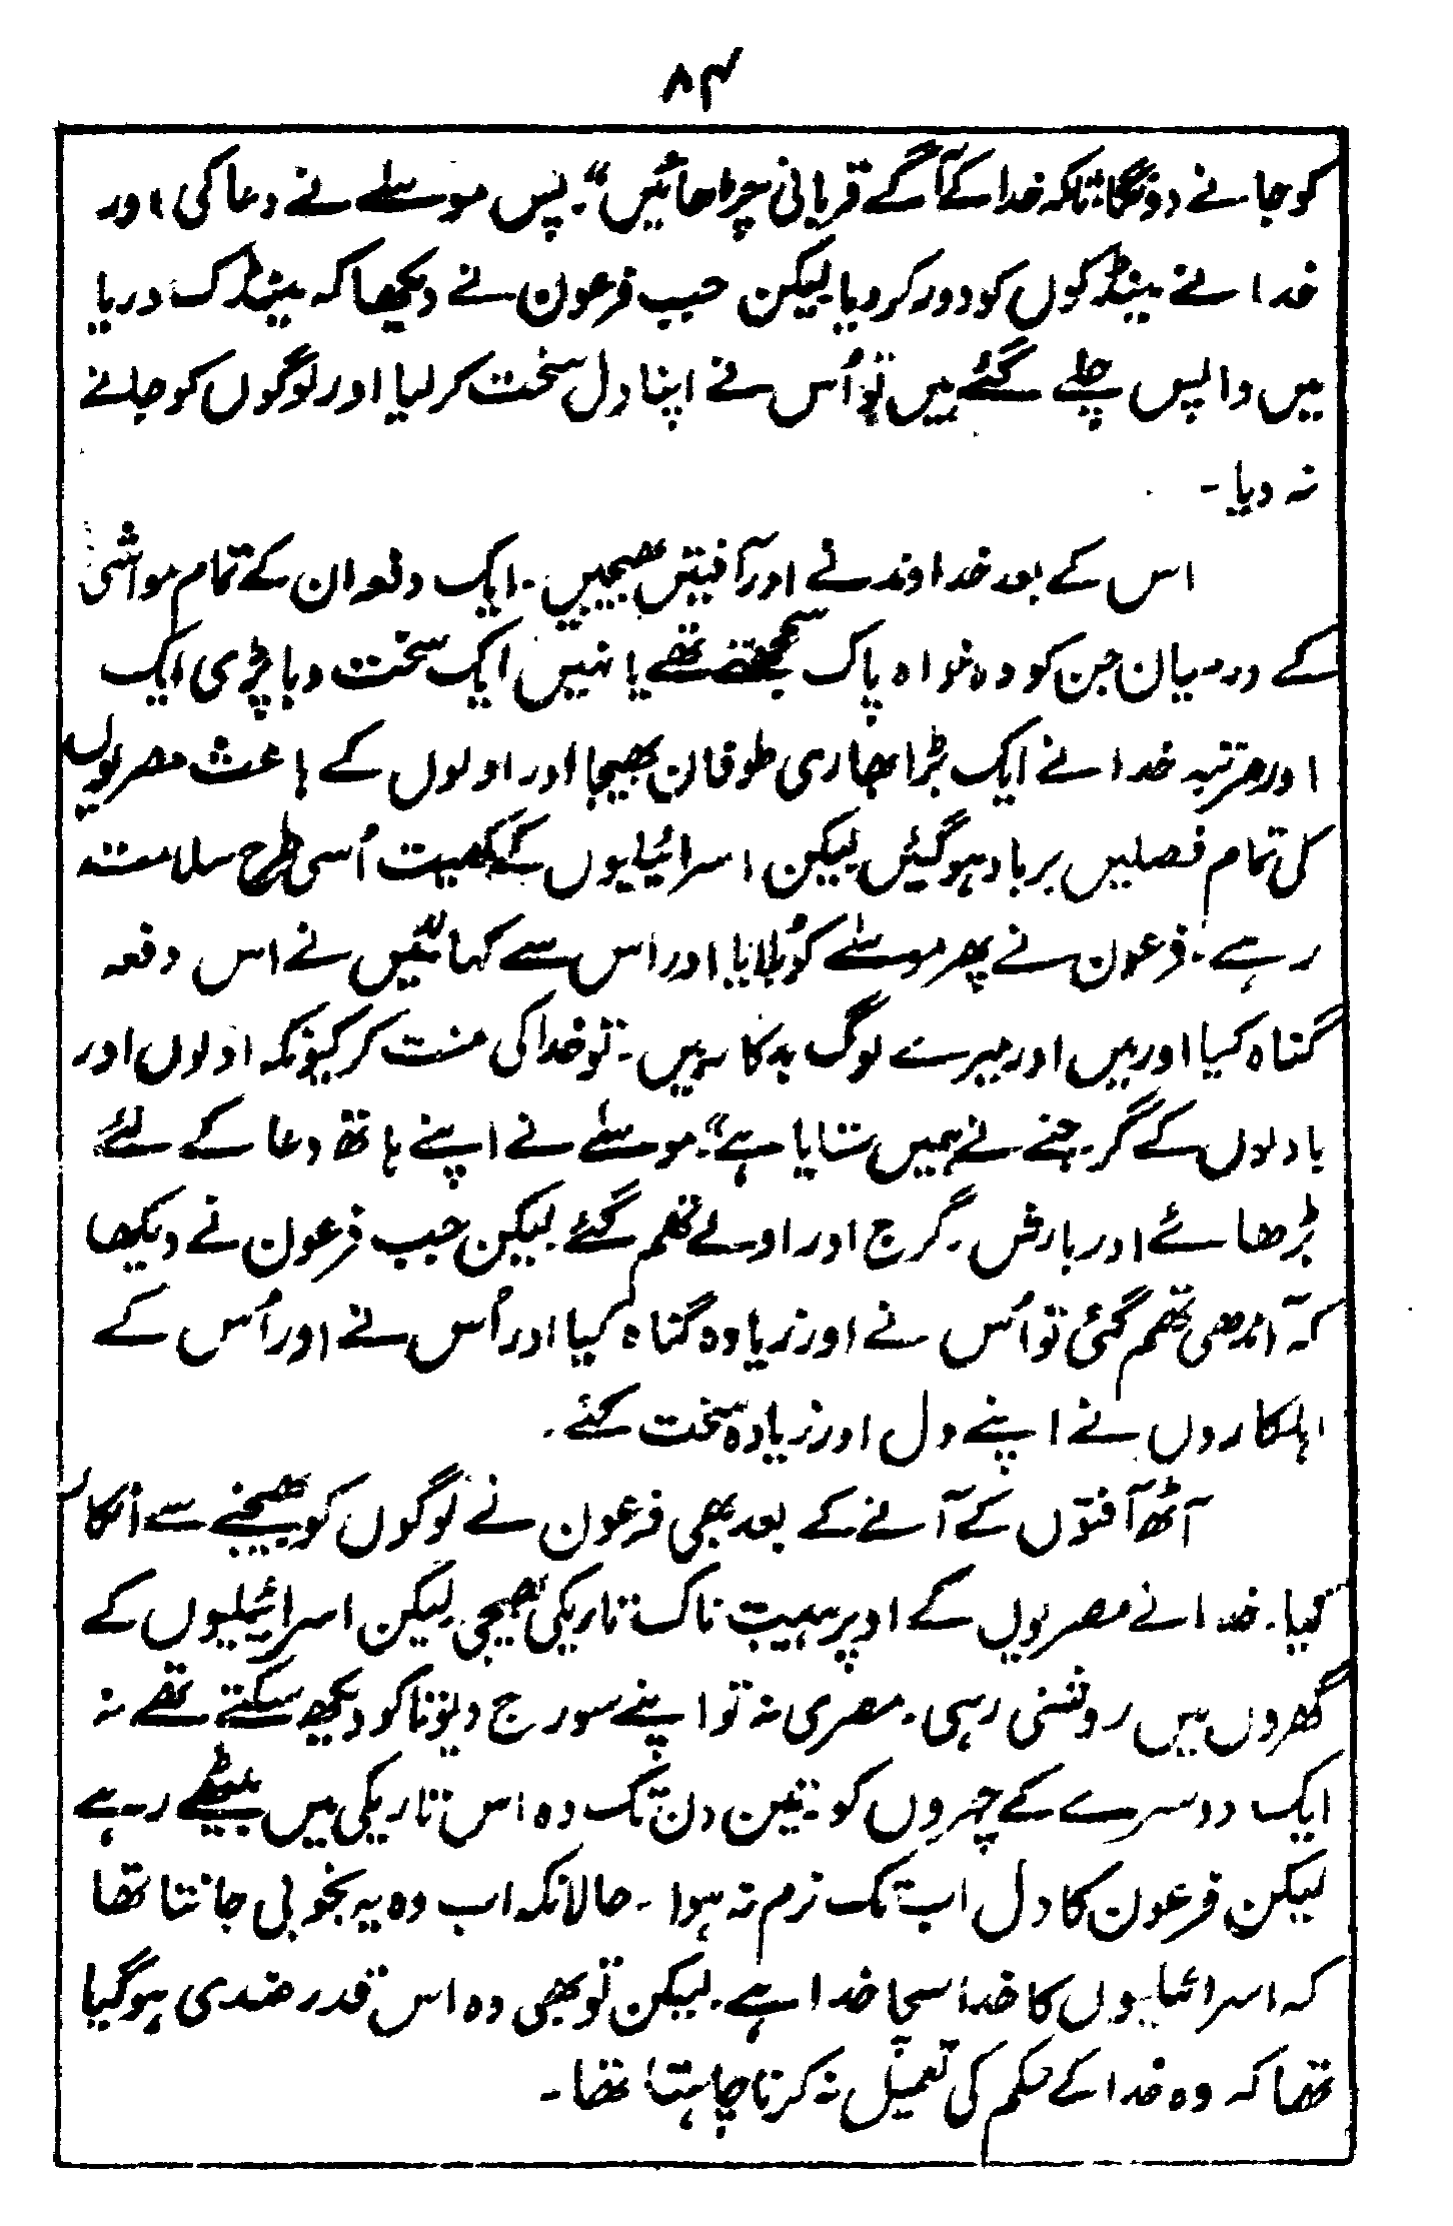 ۸۴
کو جانے دونگا۔ تاکہ خدا کے آگے قربانی چڑھائیں“۔ پس موسےٰ نے دعا کی اور
خدا نے مینڈکوں کو دور کر دیا۔ لیکن جب فرعون نے دیکھا کہ مینڈک دریا
میں واپس چلے گئے ہیں تو اُس نے اپنا دل سخت کر لیا اور لوگوں کو جانے
نہ دیا ۔
اس کے بعد خداوند نے اور آفتیں بھیجیں ۔ ایک دفعہ ان کے تمام مواشی
کے درمیان جن کو وہ خواہ پاک سمجھتے تھے یا نہیں ایک سخت وبا پڑی ایک
اور مرتبہ خدا نے ایک بڑا بھاری طوفان بھیجا اور اولوں کے باعث مصریوں
کی تمام فصلیں برباد ہو گئیں لیکن اسرائیلیوں کے کھیت اُسی طرح سلامت
رہے ۔ فرعون نے پھر موسےٰ کو بُلایا اور اس سے کہا ”میں نے اس دفعہ
گناہ کیا اور میں اور میرے لوگ بدکار ہیں ۔ تو خدا کی منت کر کیونکہ اولوں اور
بادلوں کے گرجنے نے ہمیں ستایا ہے“۔ موسےٰ نے اپنے ہاتھ دعا کے لئے
بڑھائے اور بارش ۔ گرج اور اولے تھم گئے ۔ لیکن جب فرعون نے دیکھا
کہ آندھی تھم گئی تو اُس نے اور زیادہ گناہ کیا اور اُس نے اور اُس کے
اہلکاروں نے اپنے دل اور زیادہ سخت کئے ۔
آٹھ آفتوں کے آنے کے بعد بھی فرعون نے لوگوں کو بھیجنے سے انکار
کیا ۔ خدا نے مصریوں کے اوپر ہیبت ناک تاریکی بھیجی لیکن اسرائیلیوں کے
گھروں میں روشنی رہی ۔ مصری نہ تو اپنے سورج دیوتا کو دیکھ سکتے تھے نہ
ایک دوسرے کے چہروں کو ۔ تین دن تک وہ اس تاریکی میں بیٹھے رہے
لیکن فرعون کا دل اب تک نرم نہ ہوا ۔ حالانکہ اب وہ یہ بخوبی جانتا تھا
کہ اسرائیلیوں کا خدا سچا خدا ہے ۔ لیکن تو بھی وہ اس قدر ضدی ہو گیا
تھا کہ وہ خدا کے حکم کی تعمیل نہ کرنا چاہتا تھا ۔